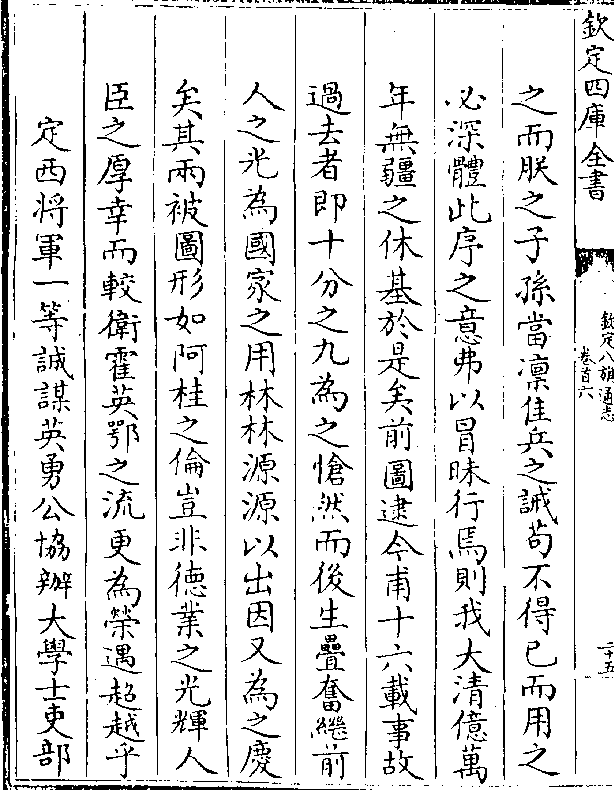 欽定四庫全書
欽定八旗通志
卷首六
二十五
之而朕之子孫當凜佳兵之誡苟不得已而用之
必深體此序之意弗以冒昧行焉則我大清億萬
年無疆之休基於是矣前圖逮今甫十六載事故
過去者即十分之九為之愴然而後生疊奮繼前
人之光為國家之用林林源源以出因又為之慶
矣其兩被圖形如阿桂之倫豈非德業之光輝人
臣之厚幸而較衛霍英鄂之流更為榮遇超越乎
定西將軍一等誠謀英勇公協辦大學士吏部